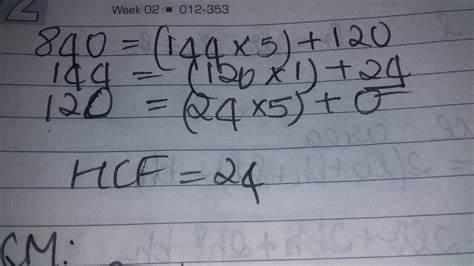 2
Week 02 ■ 012-353
840 = (144 × 5) + 120
144 = (120 × 1) + 24
120 = (24 × 5) + 0
HCF = 24
CM: